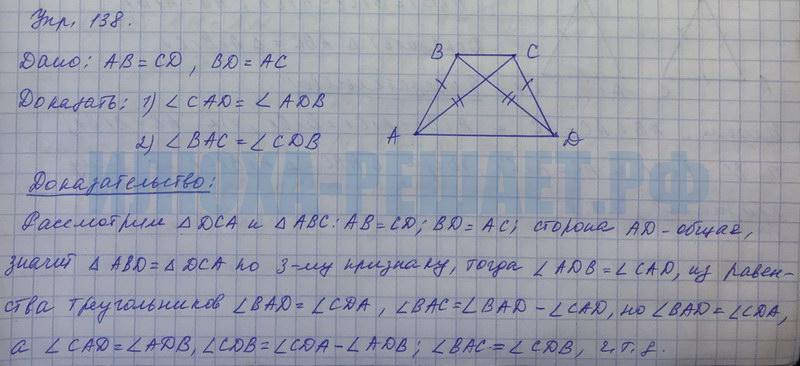 Упр. 138.
Дано: AB = CD, BD = AC
Доказать: 1) ∠CAD = ∠ADB
2) ∠BAC = ∠CDB
B C
A D
ИЛЮХА-РЕШАЕТ.РФ
Доказательство:
Рассмотрим △DCA и △ABC: AB = CD; BD = AC; сторона AD - общая,
значит △ABD = △DCA по 3-му признаку, тогда ∠ADB = ∠CAD, из равен-
ства треугольников ∠BAD = ∠CDA, ∠BAC = ∠BAD - ∠CAD, но ∠BAD = ∠CDA,
а ∠CAD = ∠ADB, ∠CDB = ∠CDA - ∠ADB; ∠BAC = ∠CDB, ч.т.д.